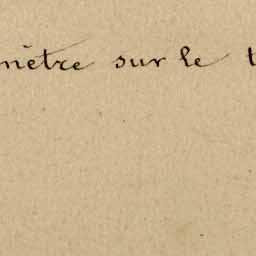 mètre sur le t